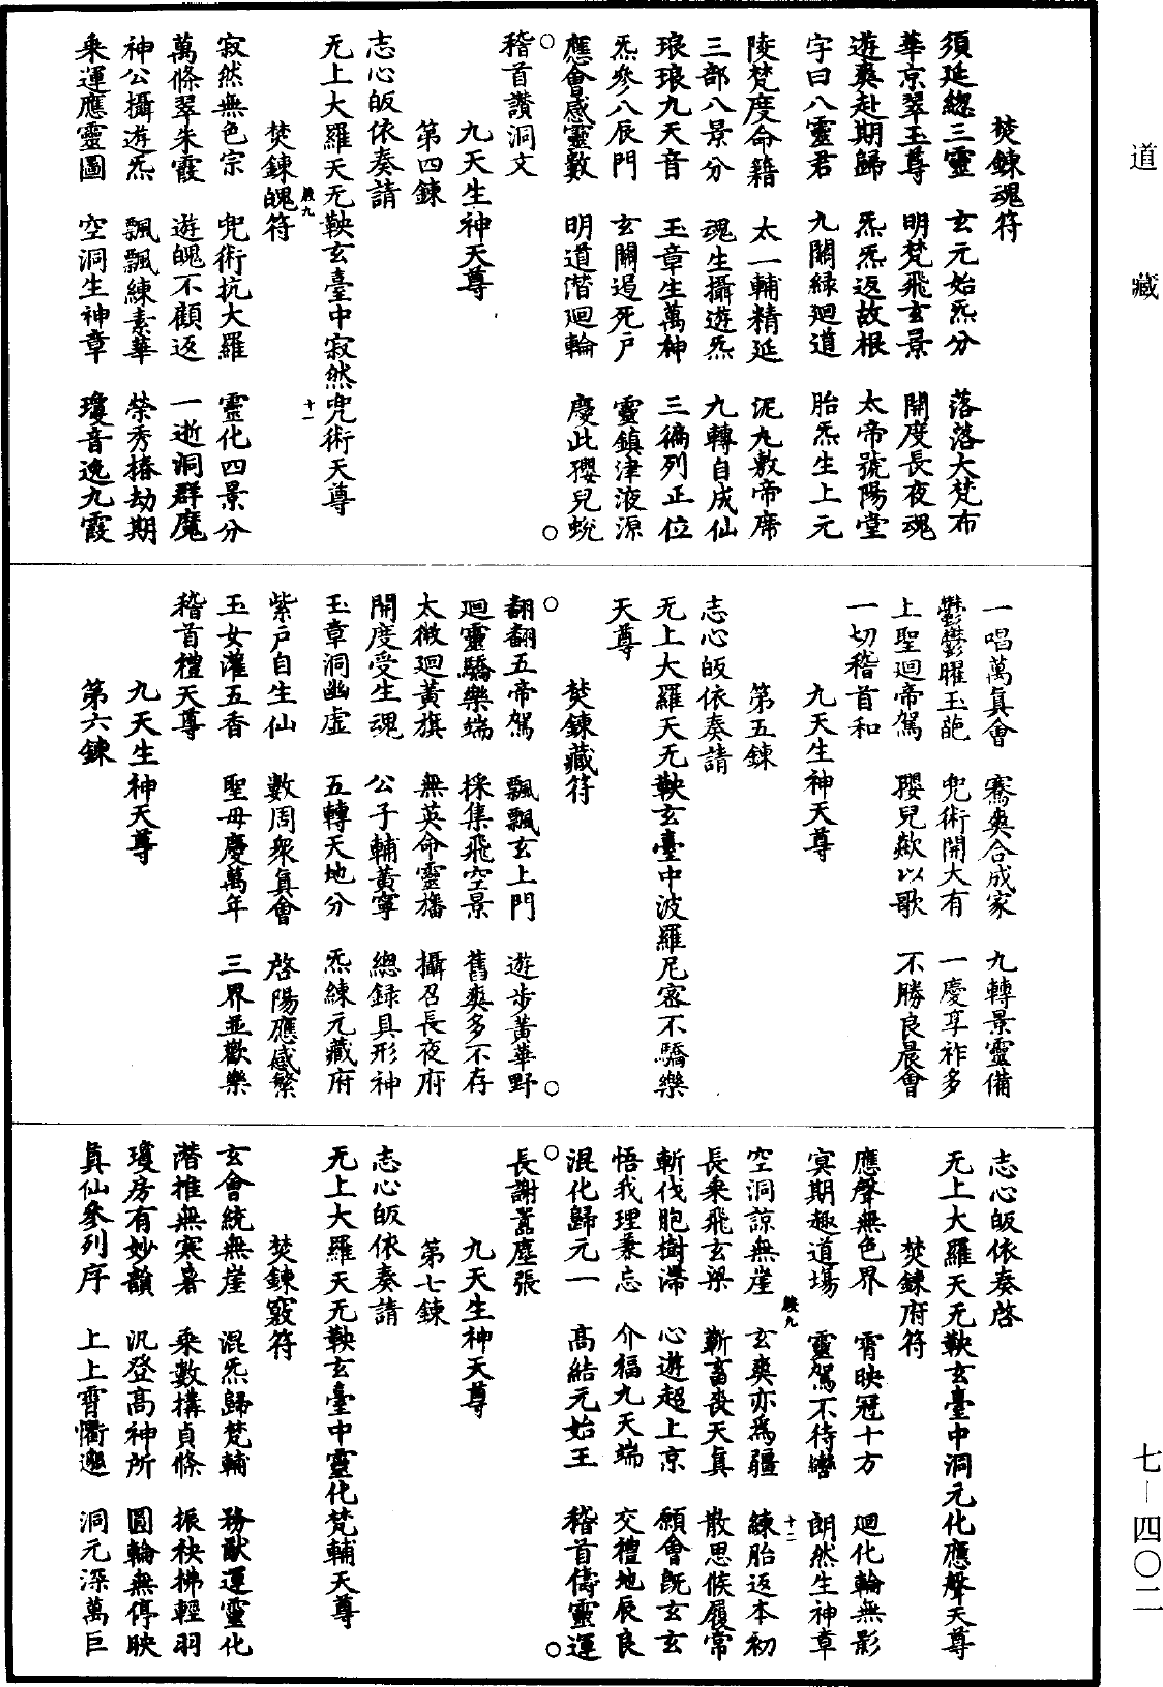 道藏
七—四〇二
焚鍊魂符
須延緫三靈　玄元始炁分　落落大梵布
華京翠玉尊　明梵飛玄景　開度長夜魂
遊爽赴期歸　炁炁返故根　太帝號陽堂
字曰八靈君　九關緑迴道　胎炁生上元
陵梵度命籍　太一輔精延　泥丸敷帝席
三部八景分　魂生攝遊炁　九轉自成仙
琅琅九天音　玉章生萬神　三徧列正位
炁參八辰門　玄關遏死戶　靈鎮津液源
應會感靈數　明道潛迴輪　慶此孾兒蛻
稽首讚洞文
九天生神天尊
第四鍊
志心皈依奏請
无上大羅天无鞅玄臺中寂然兜術天尊
焚鍊魄符
寂然無色宗　兜術抗大羅　靈化四景分
萬條翠朱霞　遊魄不顧返　一逝洞群魔
神公攝遊炁　飄飄練素華　榮秀椿劫期
乘運應靈圖　空洞生神章　瓊音逸九霞
一唱萬真會　騫爽合成家　九轉景靈備
鬱鬱曜玉葩　兜術開大有　一慶享祚多
上聖迴帝駕　孾兒歘以歌　不勝良晨會
一切稽首和
九天生神天尊
第五鍊
志心皈依奏請
无上大羅天无鞅玄臺中波羅尼密不驕樂
天尊
焚鍊藏符
翩翩五帝駕　飄飄玄上門　遊步黃華野
迴靈驕樂端　採集飛空景　舊爽多不存
太微迴黃旗　無英命靈旛　攝召長夜府
開度受生魂　公子輔黃寧　總録具形神
玉章洞幽虛　五轉天地分　炁練元藏府
紫戶自生仙　數周衆真會　啓陽應感繁
玉女灌五香　聖母慶萬年　三界並歡樂
稽首禮天尊
九天生神天尊
第六鍊
志心皈依奏啓
无上大羅天无鞅玄臺中洞元化應聲天尊
焚鍊府符
應聲無色界　霄映冠十方　迴化輪無影
冥期趣道場　靈駕不待轡　朗然生神章
空洞諒無崖　玄爽亦爲疆　練胎返本初
長乘飛玄梁　蘄畜喪天真　散思候履常
斬伐胞樹滯　心遊超上京　願會既玄玄
悟我理兼忘　介福九天端　交禮地辰良
混化歸元一　高結元始王　稽首儔靈運
長謝囂塵張
九天生神天尊
第七鍊
志心皈依奏請
无上大羅天无鞅玄臺中靈化梵輔天尊
焚鍊竅符
玄會統無崖　混炁歸梵輔　務猷運靈化
潛推無寒暑　乘數構貞條　振袂拂輕羽
瓊房有妙韻　汎登高神所　圓輪無停映
真仙參列序　上上霄衢邈　洞元深萬巨